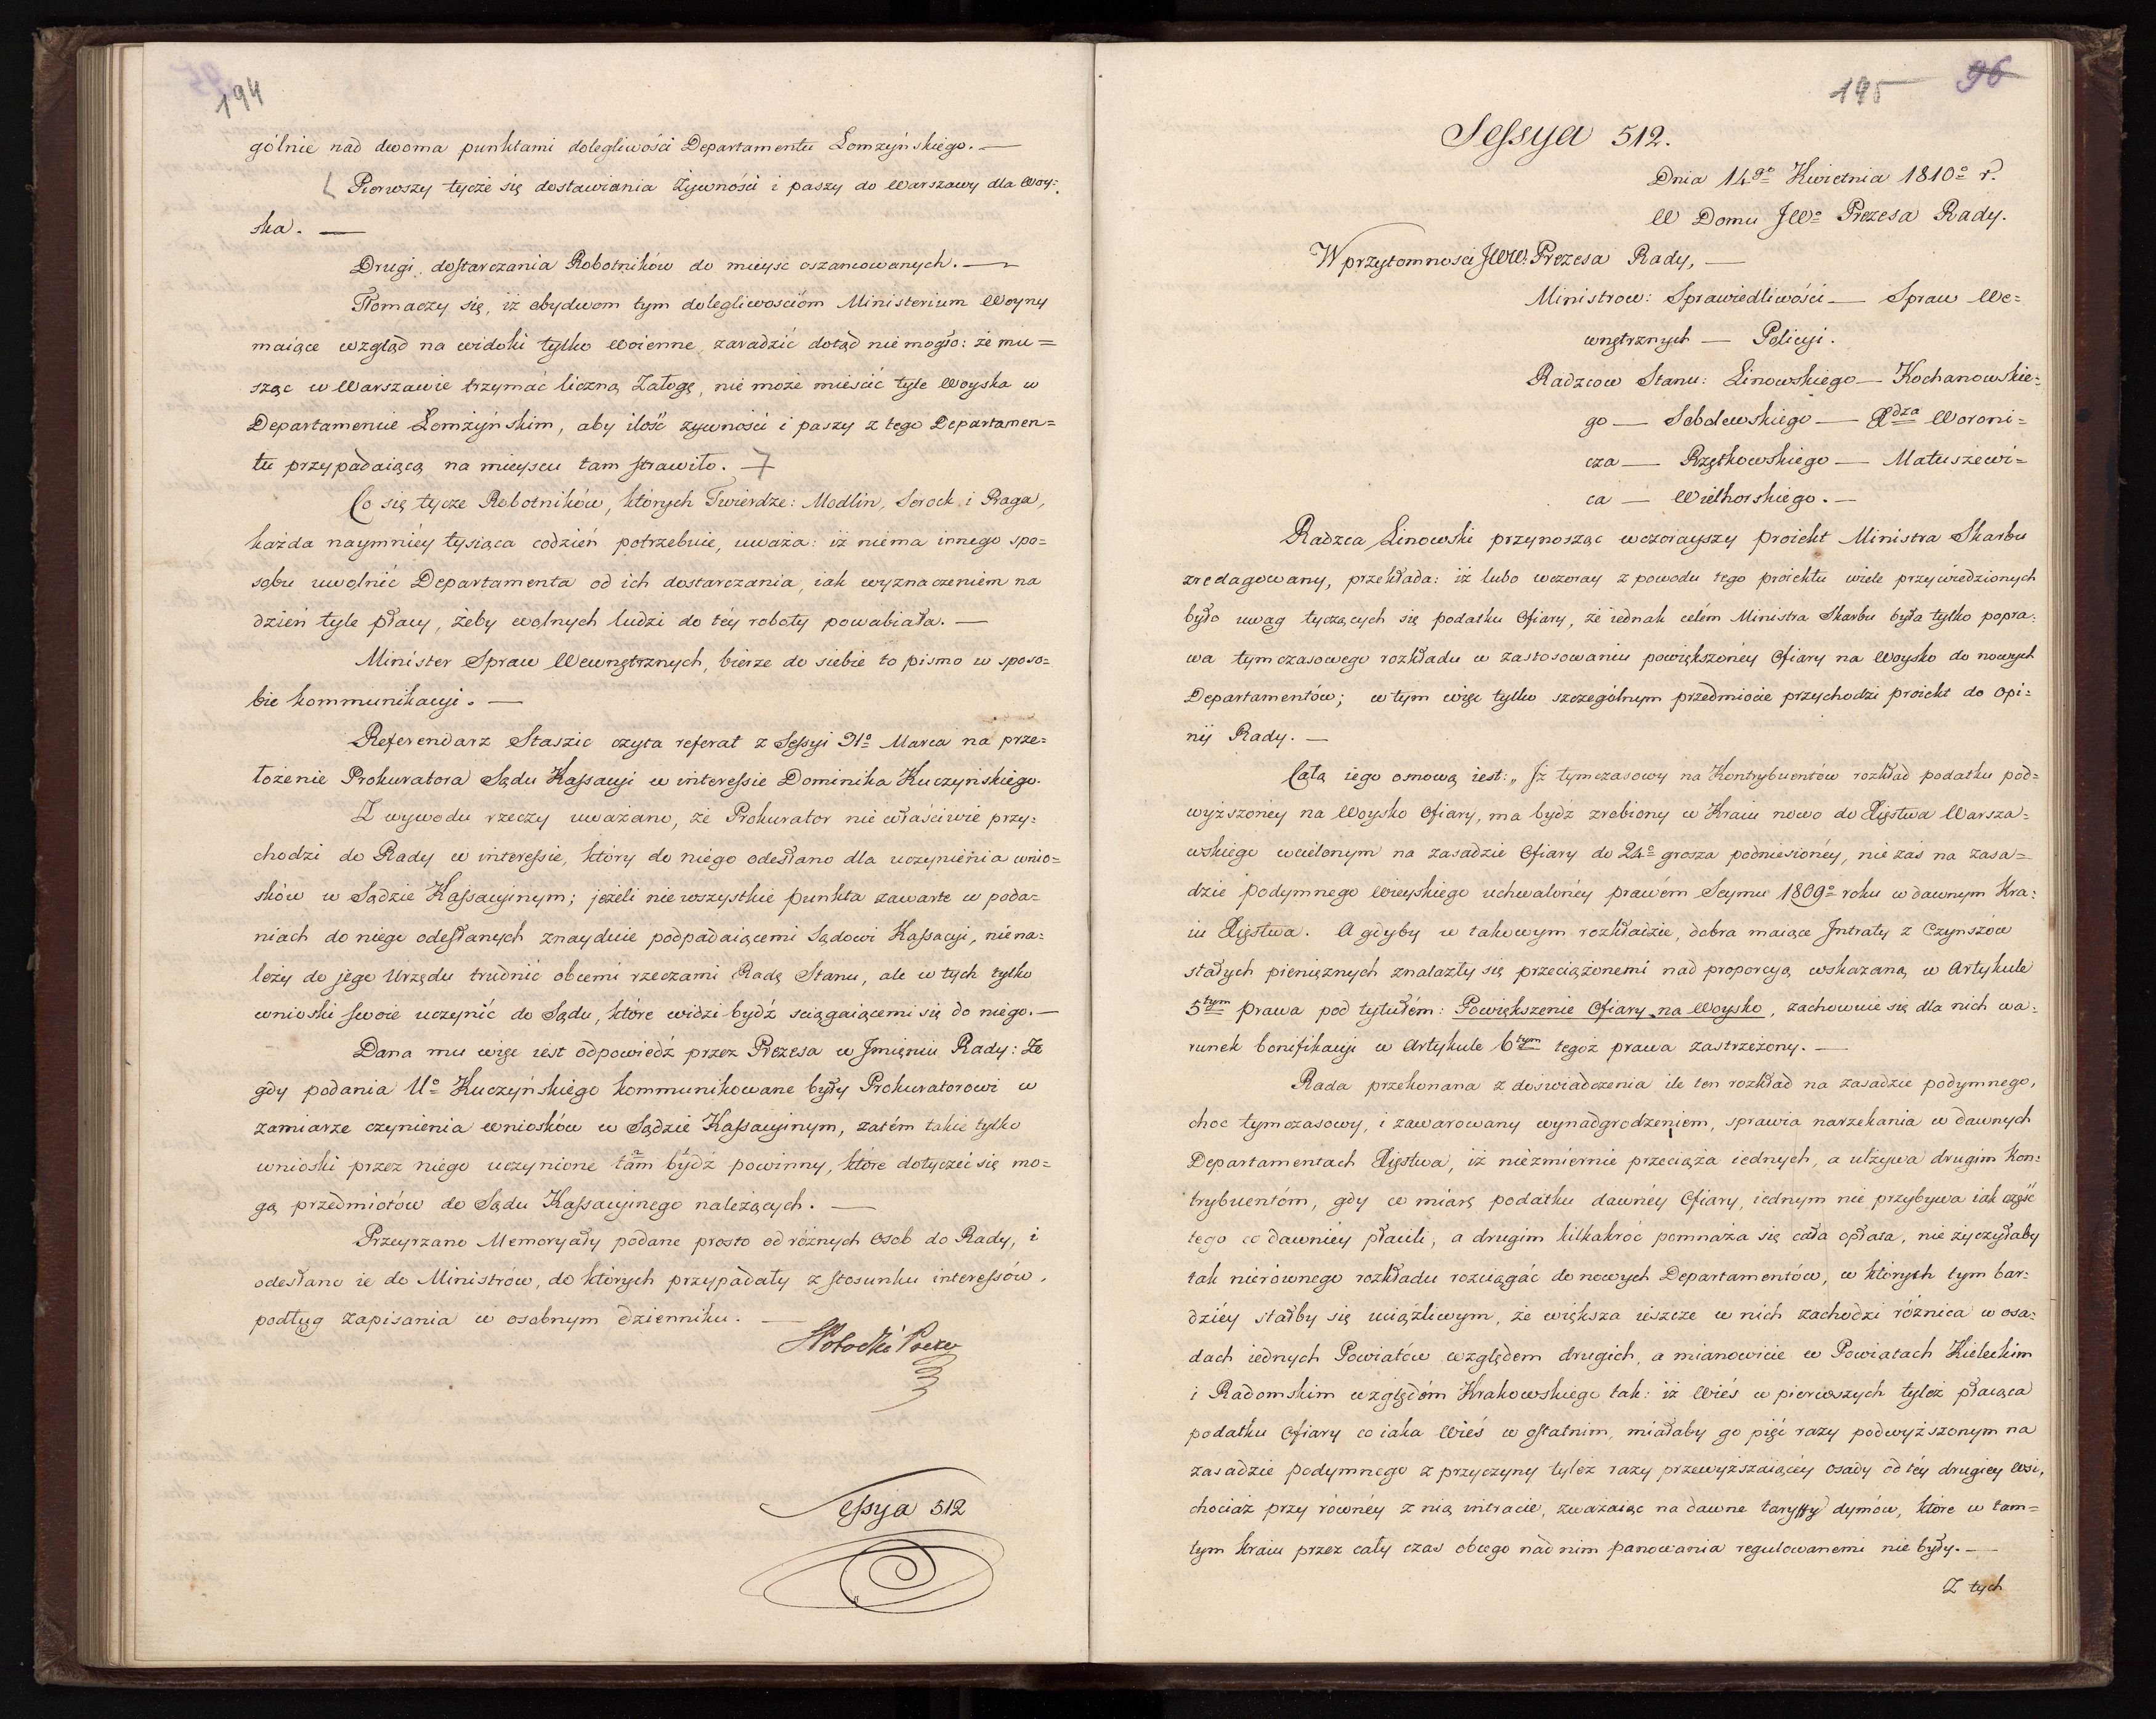 194
gólnie nad dwoma punktami dolegliwości Departamentu Łomżyńskiego. —
Pierwszy tycze się dostawiania żywności i paszy do Warszawy dla Woy=
ska. —
Drugi, dostarczania Robotników do mieysc oszancowanych. —
Tłomaczy się, iż obydwom tym dolegliwościom Ministerium Woyny
maiące wzgląd na widoki tylko woienne zaradzić dotąd nie mogło: że mu=
sząc w Warszawie trzymać liczną Załogę, nie może mieścić tyle Woyska w
Departamencie Łomżyńskim, aby ilość żywności i paszy z tego Departamen=
tu przypadaiącą na mieyscu tam strawiło. —
Co się tycze Robotników, których Twierdze: Modlin, Serock i Praga,
każda naymniéy tysiąca codzień potrzebuie, uważa: iż niema innego spo=
sobu uwolnić Departamenta od ich dostarczania, iak wyznaczeniem na
dzień tyle płacy, żeby wolnych ludzi do téy roboty powabiała. —
Minister Spraw Wewnętrznych, bierze do siebie to pismo w sposo=
bie kommunikacyi. —
Referendarz Staszic czyta referat z Sessyi 31º Marca na prze=
łożenie Prokuratora Sądu Kassacyi w interessie Dominika Kuczyńskiego.
Z wywodu rzeczy uważano, że Prokurator nie właściwie przy=
chodzi do Rady w interessie, który do niego odesłano dla uczynienia wnio=
sków w Sądzie Kassacyinym; jeżeli nie wszystkie punkta zawarte w poda=
niach do niego odesłanych znayduie podpadaiącemi Sądowi Kassacyi, nie na=
leży do jego Urzędu trudnić obcemi rzeczami Radę Stanu, ale w tych tylko
wnioski swoie uczynić do Sądu, które widzi bydź sciągaiącemi się do niego. —
Dana mu więc iest odpowiedź przez Prezesa w Imieniu Rady: Że
gdy podania Uº Kuczyńskiego kommunikowane były Prokuratorowi w
zamiarze czynienia wniosków w Sądzie Kassacyinym, zatém takie tylko
wnioski przez niego uczynione tam bydź powinny, które dotyczeć się mo=
gą przedmiotów do Sądu Kassacyinego należących. —
Przeyrzano Memoryały podane prosto od różnych Osob do Rady, i
odesłano ie do Ministrów, do których przypadały z stosunku interessów,
podług zapisania w osobnym dzienniku. —
Potocki Prezes
Sessyja 512
195 96
Sessya 512.
Dnia 14go Kwietnia 1810º r.
W Domu JWº Prezesa Rady.
W przytomnosci JWW. Prezesa Rady, —
Ministrow: Sprawiedliwości — Spraw We=
wnętrznych — Policyi.
Radzcow Stanu: Linowskiego — Kochanowskie=
go — Sobolewskiego — Xdza Woroni=
cza — Rzętkowskiego — Matuszewi=
ca — Wielhorskiego. —
Radzca Linowski przynosząc wczorayszy proiekt Ministra Skarbu
zredagowany, przekłada: iż lubo wczoray z powodu tego proiektu wiele przywiedzionych
było uwag tyczących się podatku Ofiary, że iednak celém Ministra Skarbu była tylko popra=
wa tymczasowego rozkładu w zastosowaniu powiększonéy Ofiary na Woysko do nowych
Departamentów; w tym więc tylko szczególnym przedmiocie przychodzi proiekt do opi=
nii Rady. —
Całą iego osnową iest: „Iż tymczasowy na Kontrybuentów rozkład podatku pod=
wyższonéy na Woysko Ofiary, ma bydź zrobiony w Kraiu nowo do Xięstwa Warsza=
wskiego wcielonym na zasadzie Ofiary do 24º grosza podniesionéy, nie zaś na zasa=
dzie podymnego wieyskiego uchwalonéy prawém Seymu 1809º roku w dawnym Kra=
iu Xięstwa. A gdyby w takowym rozkładzie, dobra maiące Intraty z Czynszów
stałych pieniężnych znalazły się przeciążonemi nad proporcyą wskazaną w Artykule
5tym prawa pod tytułém: Powiększenie Ofiary na Woysko, zachowuie się dla nich wa=
runek bonifikacyi w Artykule 6tym tegoż prawa zastrzeżony. —
Rada przekonana z doświadczenia ile ten rozkład na zasadzie podymnego,
choc tymczasowy, i zawarowany wynadgrodzeniem, sprawia narzekania w dawnych
Departamentach Xięstwa, iż niezmiernie przeciąża iednych, a ulżywa drugim Kon=
trybuentóm, gdy w miarę podatku dawnéy Ofiary, iednym nie przybywa iak część
tego co dawniéy płacili, a drugim kilkakroć pomnaża się cała opłata, nie życzyłaby
tak nierównego rozkładu rozciągać do nowych Departamentów, w których tym bar=
dziéy stałby się uciążliwym, że większa ieszcze w nich zachodzi różnica w osa=
dach iednych Powiatów względem drugich, a mianowicie w Powiatach Kieleckim
i Radomskim względém Krakowskiego tak: iż Wieś w pierwszych tyleż płacąca
podatku Ofiary co iaka Wieś w ostatnim, miałaby go pięć razy podwyższonym na
zasadzie podymnego z przyczyny tyleż razy przewyższaiącéy osady od téy drugiéy Wsi,
chociaż przy równéy z nią intracie, zważaiąc na dawne taryffy dymów, które w tam=
tym kraiu przez cały czas obcego nad nim panowania regulowanemi nie były. —
Z tych